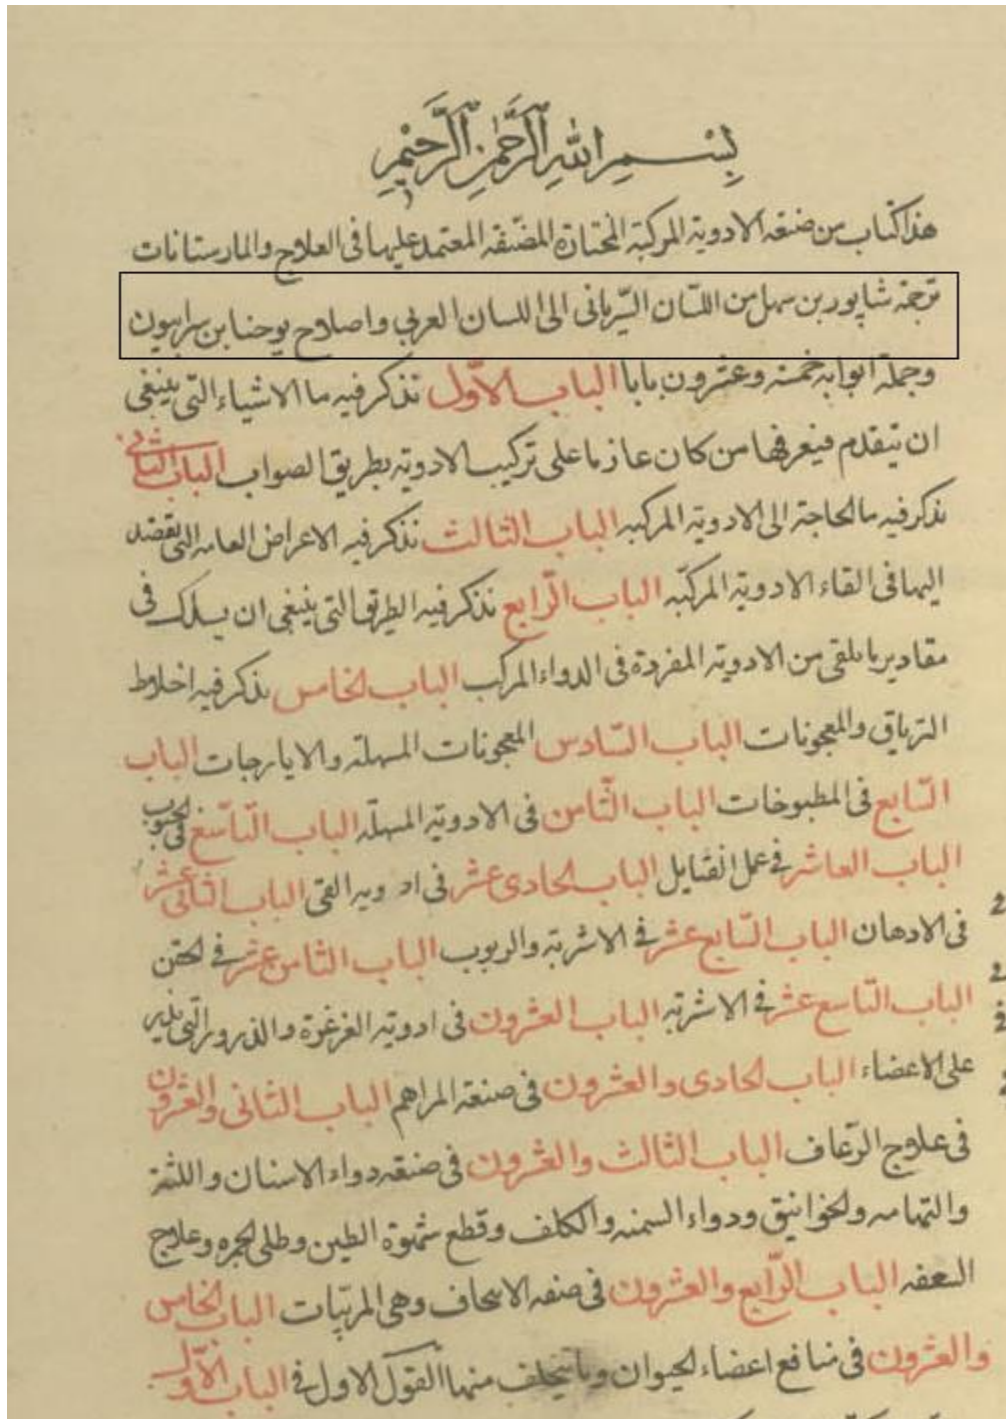 بِسْمِ اللهِ الرَّحْمٰنِ الرَّحِيْمِ
هذا كتاب من صنعه الادوية المركبة المختارة المصنفه المعتمد عليها فى العلاج والمارستانات
ترجمة شاپور بن سهل من اللسان السّريانى الى اللسان العربي واصلاح يوحنا بن سرابيون
وجملة ابوابه خمسة وعشرون بابا الباب الاوّل نذكر فيه ما الاشياء التى ينبغى
ان يتقدم فيعرفها من كان عازما على تركيب الادوية بطريق الصواب الباب الثانى
نذكر فيه ما الحاجة الى الادوية المركبه الباب الثالث نذكر فيه الاعراض العامه التى تقصد
اليها فى القاء الادوية المركّبه الباب الرّابع نذكر فيه الطريق التى ينبغى ان يسلك فى
مقادير ما يلقى من الادوية المفردة فى الدواء المركب الباب الخامس نذكر فيه اخلاط
الترياق والمعجونات الباب السّادس المعجونات المسهلة والايارجات الباب
السّابع فى المطبوخات الباب الثّامن فى الادوية المسهلّه الباب التّاسع فى الحبوب
الباب العاشر فى عمل الفتايل الباب الحادى عشر فى ادويه القى الباب الثانى عشر
فى الادهان الباب السّابع عشر فى الاشربة والربوب الباب الثامن عشر فى الحقن
الباب التّاسع عشر فى الاشربه الباب العشرون فى ادوية الغرغرة والذرور التى يذر
على الاعضاء الباب الحادى والعشرون فى صنعة المراهم الباب الثانى والعشرون
فى علاج الرّعاف الباب الثالث والعشرون فى صنعه دواء الاسنان واللثة
والخوانيق ودواء السمنه والكلف وقطع شهوة الطين وطلى وعلاج
السعفه الباب الرّابع والعشرون فى وهى المربّيات الباب الخامس
والعشرون فى منافع اعضاء الحيوان وما منها القول الاول فى الباب الاوّل